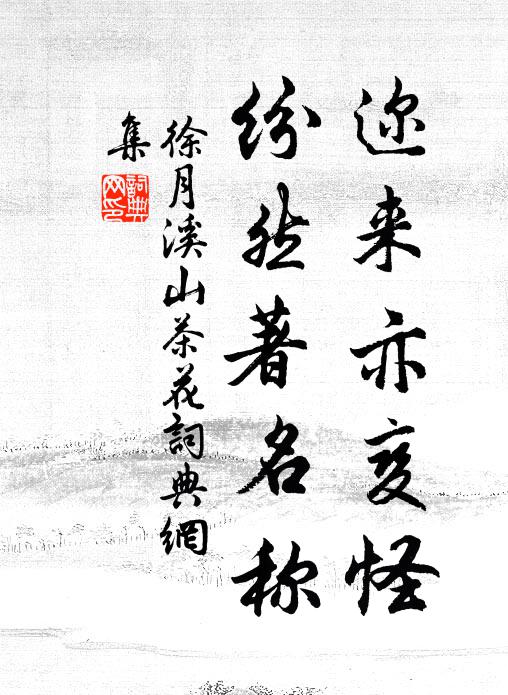 迩来亦变怪
纷然著名称
徐月溪山茶花詞典網
集
詞典
网印